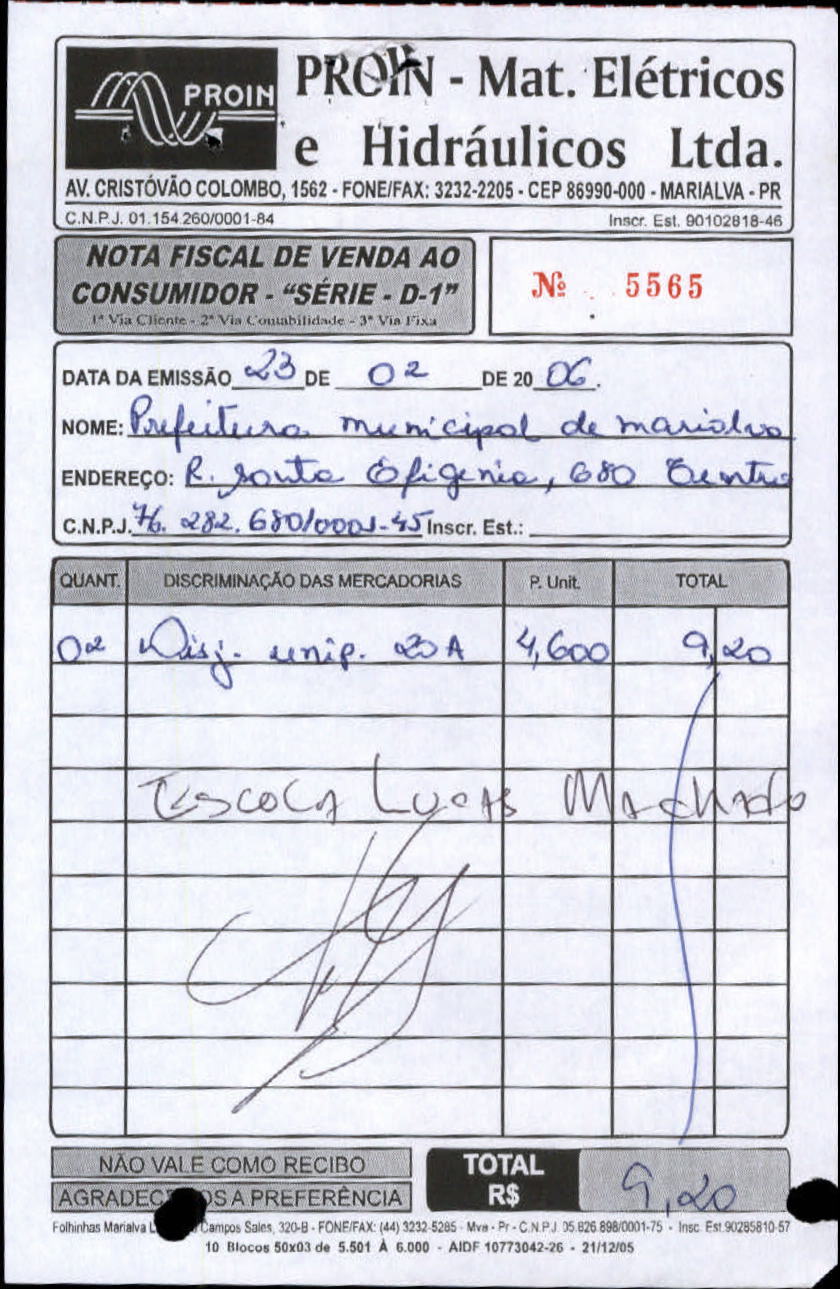 PROIN
PROIN - Mat. Elétricos
e Hidráulicos Ltda.
AV. CRISTÓVÃO COLOMBO, 1562 - FONE/FAX: 3232-2205 - CEP 86990-000 - MARIALVA - PR
C.N.P.J. 01.154.260/0001-84 Inscr. Est. 90102818-46
NOTA FISCAL DE VENDA AO
CONSUMIDOR - "SÉRIE - D-1"
1ª Via Cliente - 2ª Via Contabilidade - 3ª Via Fixa
Nº 5565
DATA DA EMISSÃO 23 DE 02 DE 20 06.
NOME: Prefeitura municipal de marialva
ENDEREÇO: R. Santa Efigenia, 680 Centro
C.N.P.J. 76.282.680/0001-45 Inscr. Est.:
QUANT. DISCRIMINAÇÃO DAS MERCADORIAS P. Unit. TOTAL
02 Disj. unip. 20A 4,600 9,20
Escola Lucas Machado
NÃO VALE COMO RECIBO
AGRADEC OS A PREFERÊNCIA
TOTAL
R$ 9,20
Folhinhas Marialva L Campos Sales, 320-B - FONE/FAX: (44) 3232-5285 - Mva - Pr - C.N.P.J. 05.826.898/0001-75 - Insc. Est.90285810-57
10 Blocos 50x03 de 5.501 À 6.000 - AIDF 10773042-26 - 21/12/05